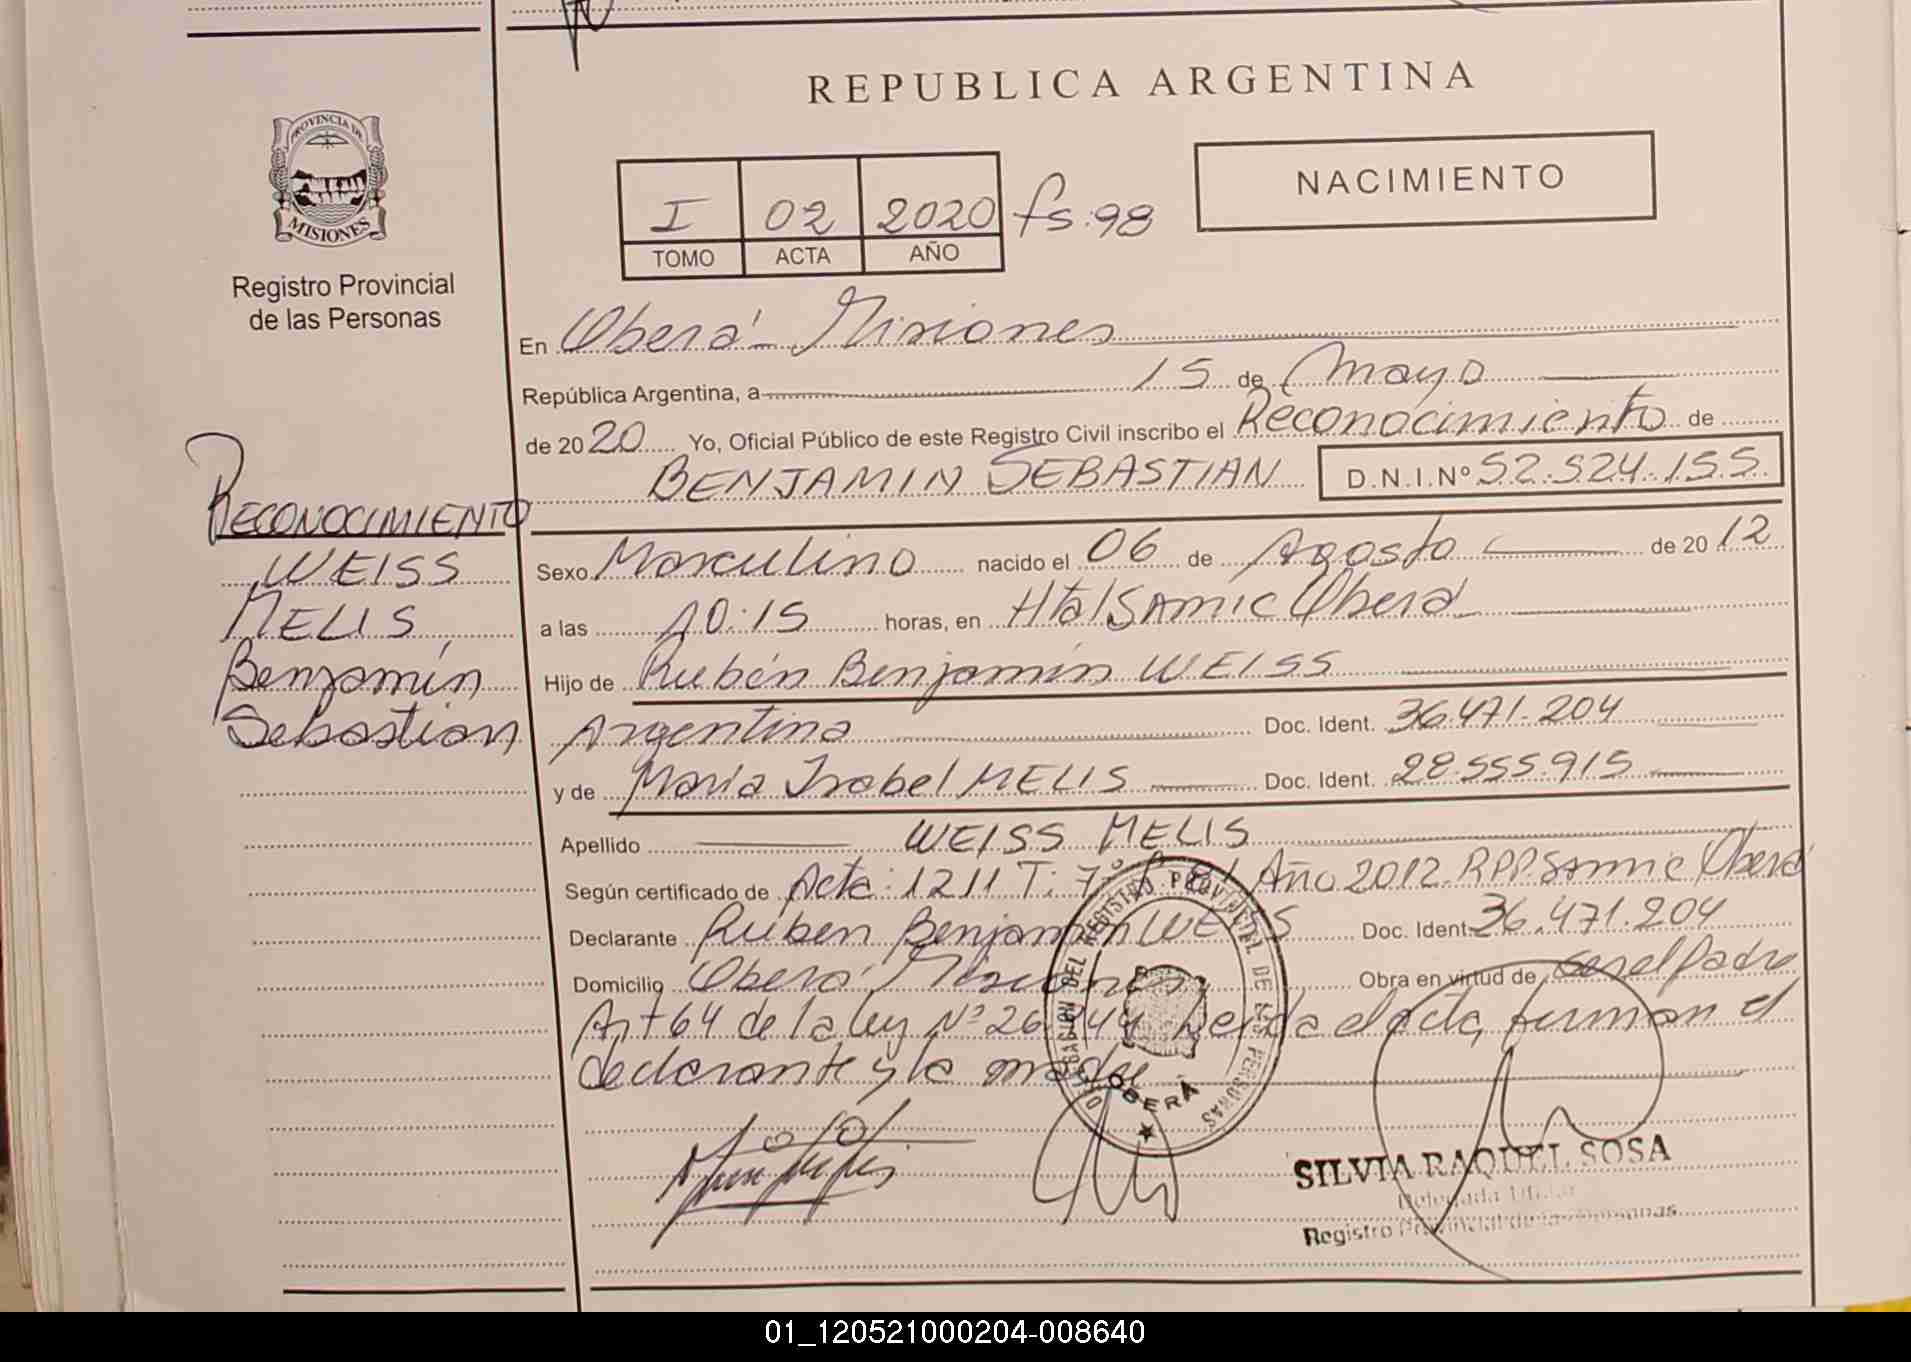 REPUBLICA ARGENTINA
PROVINCIA DE
MISIONES
Registro Provincial
de las Personas
NACIMIENTO
I 02 2020 fs. 98
TOMO ACTA AÑO
En Oberá - Misiones
República Argentina, a 15 de Mayo
de 2020 Yo, Oficial Público de este Registro Civil inscribo el Reconocimiento de
BENJAMIN SEBASTIAN D.N.I.Nº 52.524.155
RECONOCIMIENTO
WEISS
MELIS
Benjamín
Sebastian
Sexo Masculino nacido el 06 de Agosto de 2012
a las 10:15 horas, en Htal SAMIC Oberá
Hijo de Rubén Benjamín WEISS
Argentina Doc. Ident. 36.471.204
y de María Isabel MELIS Doc. Ident. 28.555.915
Apellido WEISS MELIS
Según certificado de Acta: 1211 T: 7º Año 2012. RPP. Samic Oberá
Declarante Ruben Benjamín WEISS Doc. Ident. 36.471.204
Domicilio Oberá Misiones Obra en virtud de ser el Padre
Art 64 de la ley Nº 26.944 Leída el acta, firman el
declarante y la madre
DELEGACION DEL REGISTRO PROVINCIAL DE LAS PERSONAS
OBERÁ
SILVIA RAQUEL SOSA
Delegada Titular
Registro Provincial de las Personas
01_120521000204-008640